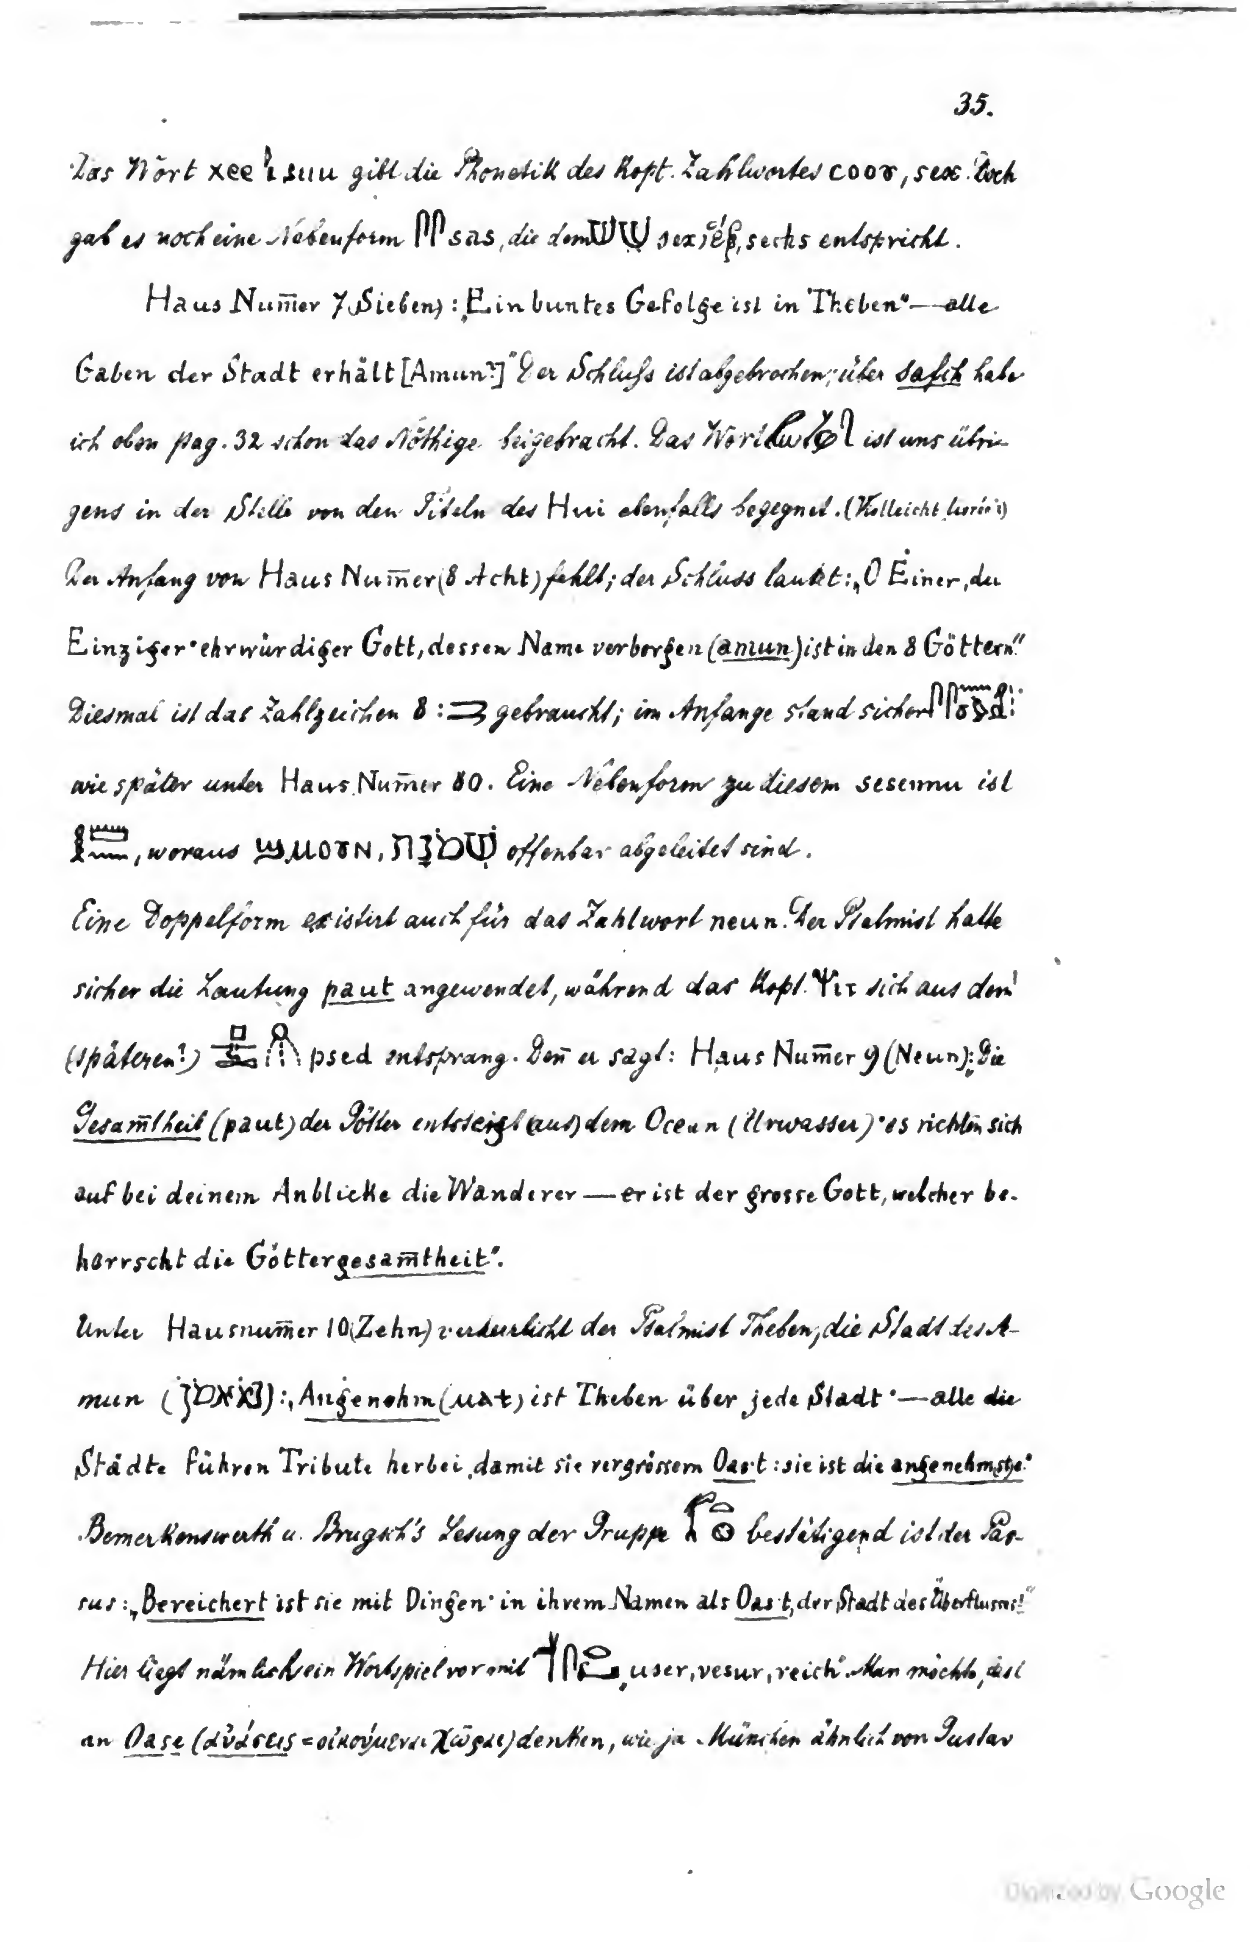 35.
Das Wort xee suu gibt die Phonetik des Kopt. Zahlwortes cooⲩ, sex. Doch
gab es noch eine Nebenform sas, die dem שש sex, ἕξ, sechs entspricht.
Haus Num̄er 7 (Sieben): „Ein buntes Gefolge ist in Theben"—alle
Gaben der Stadt erhält [Amun?]" Der Schluſs ist abgebrochen; über safch habe
ich oben pag. 32 schon das Nöthige beigebracht. Das Wort ist uns übri-
gens in der Stelle von den Titeln des Hui ebenfalls begegnet. (Vielleicht
Der Anfang von Haus Num̄er (8 Acht) fehlt; der Schluss lautet: „O Einer, du
Einziger • ehrwürdiger Gott, dessen Name verborgen (amun) ist in den 8 Göttern."
Diesmal ist das Zahlzeichen 8: gebraucht; im Anfange stand sicher
wie später unter Haus Num̄er 80. Eine Nebenform zu diesem sesennu ist
, woraus ϣⲙⲟⲩⲛ, שמנה offenbar abgeleitet sind.
Eine Doppelform existirt auch für das Zahlwort neun. Der Psalmist hatte
sicher die Lautung paut angewendet, während das Kopt. ⲯⲓⲧ sich aus dem
(späteren?) psed entsprang. Den̄ er sagt: Haus Num̄er 9 (Neun): „Die
Gesam̄theit (paut) der Götter entsteigt (aus) dem Ocean (Urwasser) • es richten sich
auf bei deinem Anblicke die Wanderer — er ist der grosse Gott, welcher be-
herrscht die Göttergesam̄theit".
Unter Hausnum̄er 10 (Zehn) verherrlicht der Psalmist Theben, die Stadt des A-
mun (נא אמון): „Angenehm (mat) ist Theben über jede Stadt •—alle die
Städte führen Tribute herbei, damit sie vergrössern Oast: sie ist die angenehmste."
Bemerkenswerth u. Brugsch's Lesung der Gruppe bestätigend ist der Pas-
sus: „Bereichert ist sie mit Dingen • in ihrem Namen als Oast, der Stadt des Überflusses!"
Hier liegt nämlich ein Wortspiel vor mit user, vesur, reich". Man möchte fast
an Oase (αὐάσεις = οἰκούμεναι χῶραι) denken, wie ja München ähnlich von Gustav
Digitized by Google